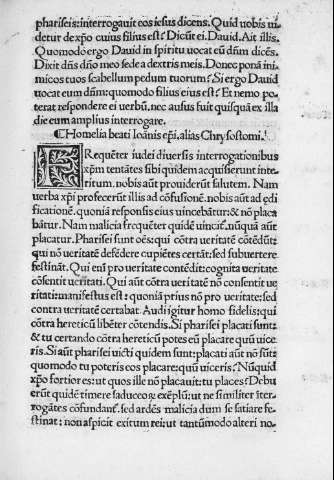 phariseis: interrogauit eos iesus dicens. Quid uobis ui-
detur de xp̄o cuius filius est? Dicūt ei. Dauid. Ait illis.
Quomodo ergo Dauid in spiritu uocat eū dn̄m dicēs.
Dixit dn̄s dn̄o meo sede a dextris meis. Donec ponā ini
micos tuos scabellum pedum tuorum? Si ergo Dauid
uocat eum dn̄m: quomodo filius eius est? Et nemo po-
terat respondere ei uerbū, nec ausus fuit quisquā ex illa
die eum amplius interrogare.
¶ Homelia beati Ioannis ep̄i, alias Chrysostomi.
FRequēter iudei diuersis interrogationibus
xp̄m tentātes sibi quidem acquisierunt inte-
ritum. nobis aūt prouiderūt salutem. Nam
uerba xp̄i profecerūt illis ad cōfusionē. nobis aūt ad edi
ficationē. quoniā responsis eius uincebātur: & nō placa
bātur. Nam malicia frequēter quidē uincit̄. nūquā aūt
placatur. Pharisei sunt oēs: qui cōtra ueritatē cōtēdūt:
qui nō ueritatē defēdere cupiētes certāt: sed subuertere
festināt. Qui eni pro ueritate contēdit: cognita ueritate
cōsentit ueritati. Qui aūt cōtra ueritatē nō consentit ue
ritati: manifestus est: quoniā prius nō pro ueritate: sed
contra ueritatē certabat. Audi igitur homo fidelis: qui
cōtra hereticū libēter cōtendis. Si pharisei placati sunt:
& tu certando cōtra hereticū potes eū placare quū uice
ris. Si aūt pharisei uicti quidem sunt: placati aūt nō sūt:
quomodo tu poteris eos placare: quū uiceris? Nūquid
xp̄o fortior es: ut quos ille nō placauit: tu places? Debu
erūt quidē timere saduceoꝝ exēplū: ut ne similiter īter-
rogātes cōfundant̄. sed ardēs malicia dum se satiare fe-
stinat: non aspicit exitum rei: ut tantūmodo alteri no-